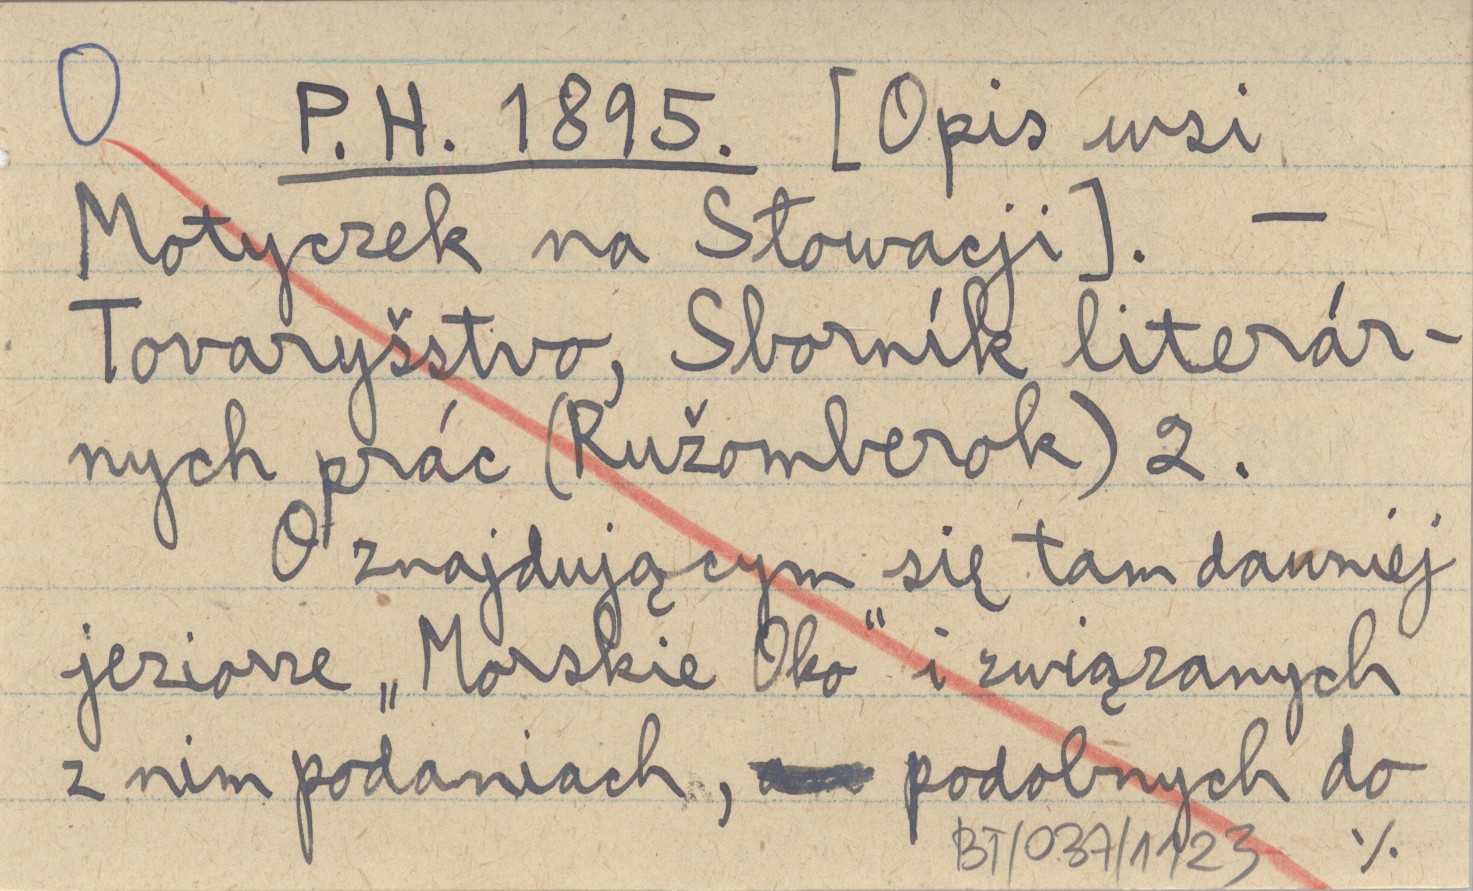 O P.H. 1895. [Opis wsi
Motyczek na Słowacji]. —
Tovaryšstvo, Sborník literár-
nych prác (Ružomberok) 2.
O znajdującym się tam dawniej
jeziorze „Morskie Oko" i związanych
z nim podaniach, podobnych do
BT/037/1123 ./.